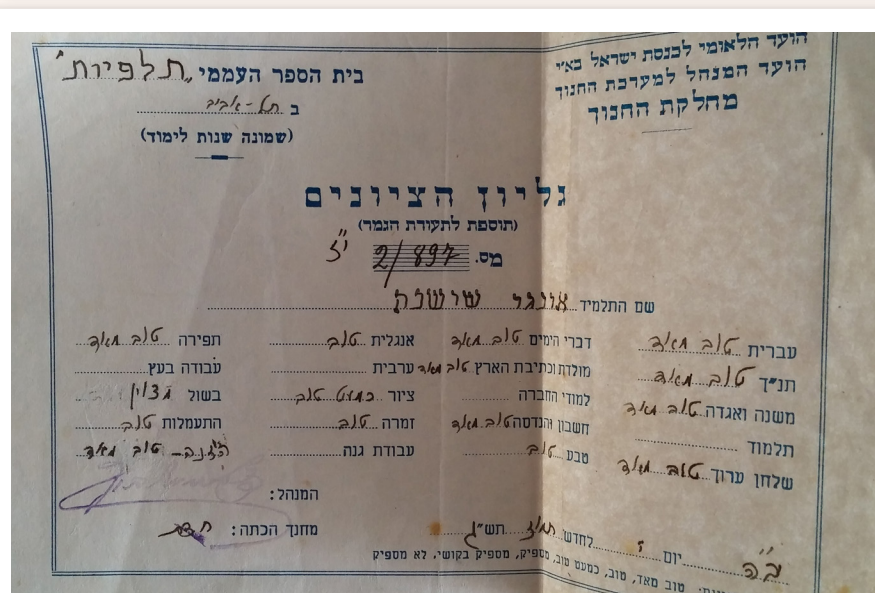 הועד הלאומי לכנסת ישראל בא״י
הועד המנהל למערכת החנוך
מחלקת החנוך
בית הספר העממי „תלפיות״
ב תל-אביב
(שמונה שנות לימוד)
גליון הציונים
(תוספת לתעודת הגמר)
מס. 2/897 י״ז
שם התלמיד אונגר שושנה
עברית טוב מאד
תנ״ך טוב מאד
משנה ואגדה טוב מאד
תלמוד
שלחן ערוך טוב מאד
דברי הימים טוב מאד
מולדת וכתיבת הארץ טוב מאד
למודי החברה
חשבון והנדסה טוב מאד
טבע טוב
אנגלית טוב
ערבית
ציור כמעט טוב
זמרה טוב
עבודת גנה
תפירה טוב מאד
עבודה בעץ
בשול מצוין
התעמלות טוב
טוב מאד
המנהל:
מחנך הכתה:
ב״ה יום ז לחדש תמוז תש״ג
טוב מאד, טוב, כמעט טוב, מספיק, מספיק בקושי, לא מספיק